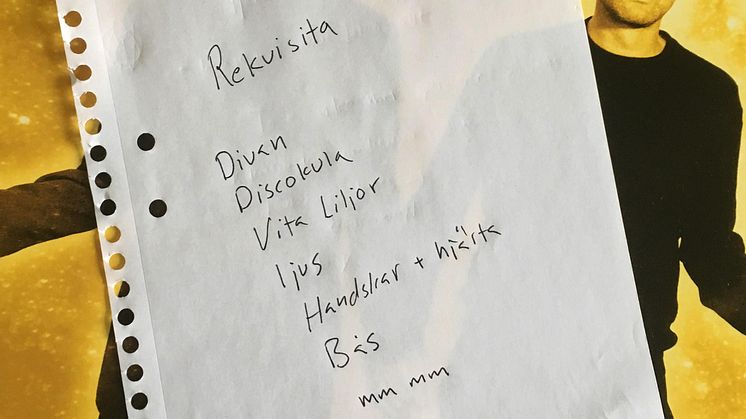 Rekvisita
Divan
Discokula
Vita Liljor
ljus
Handskar + hjärta
Bås
mm mm